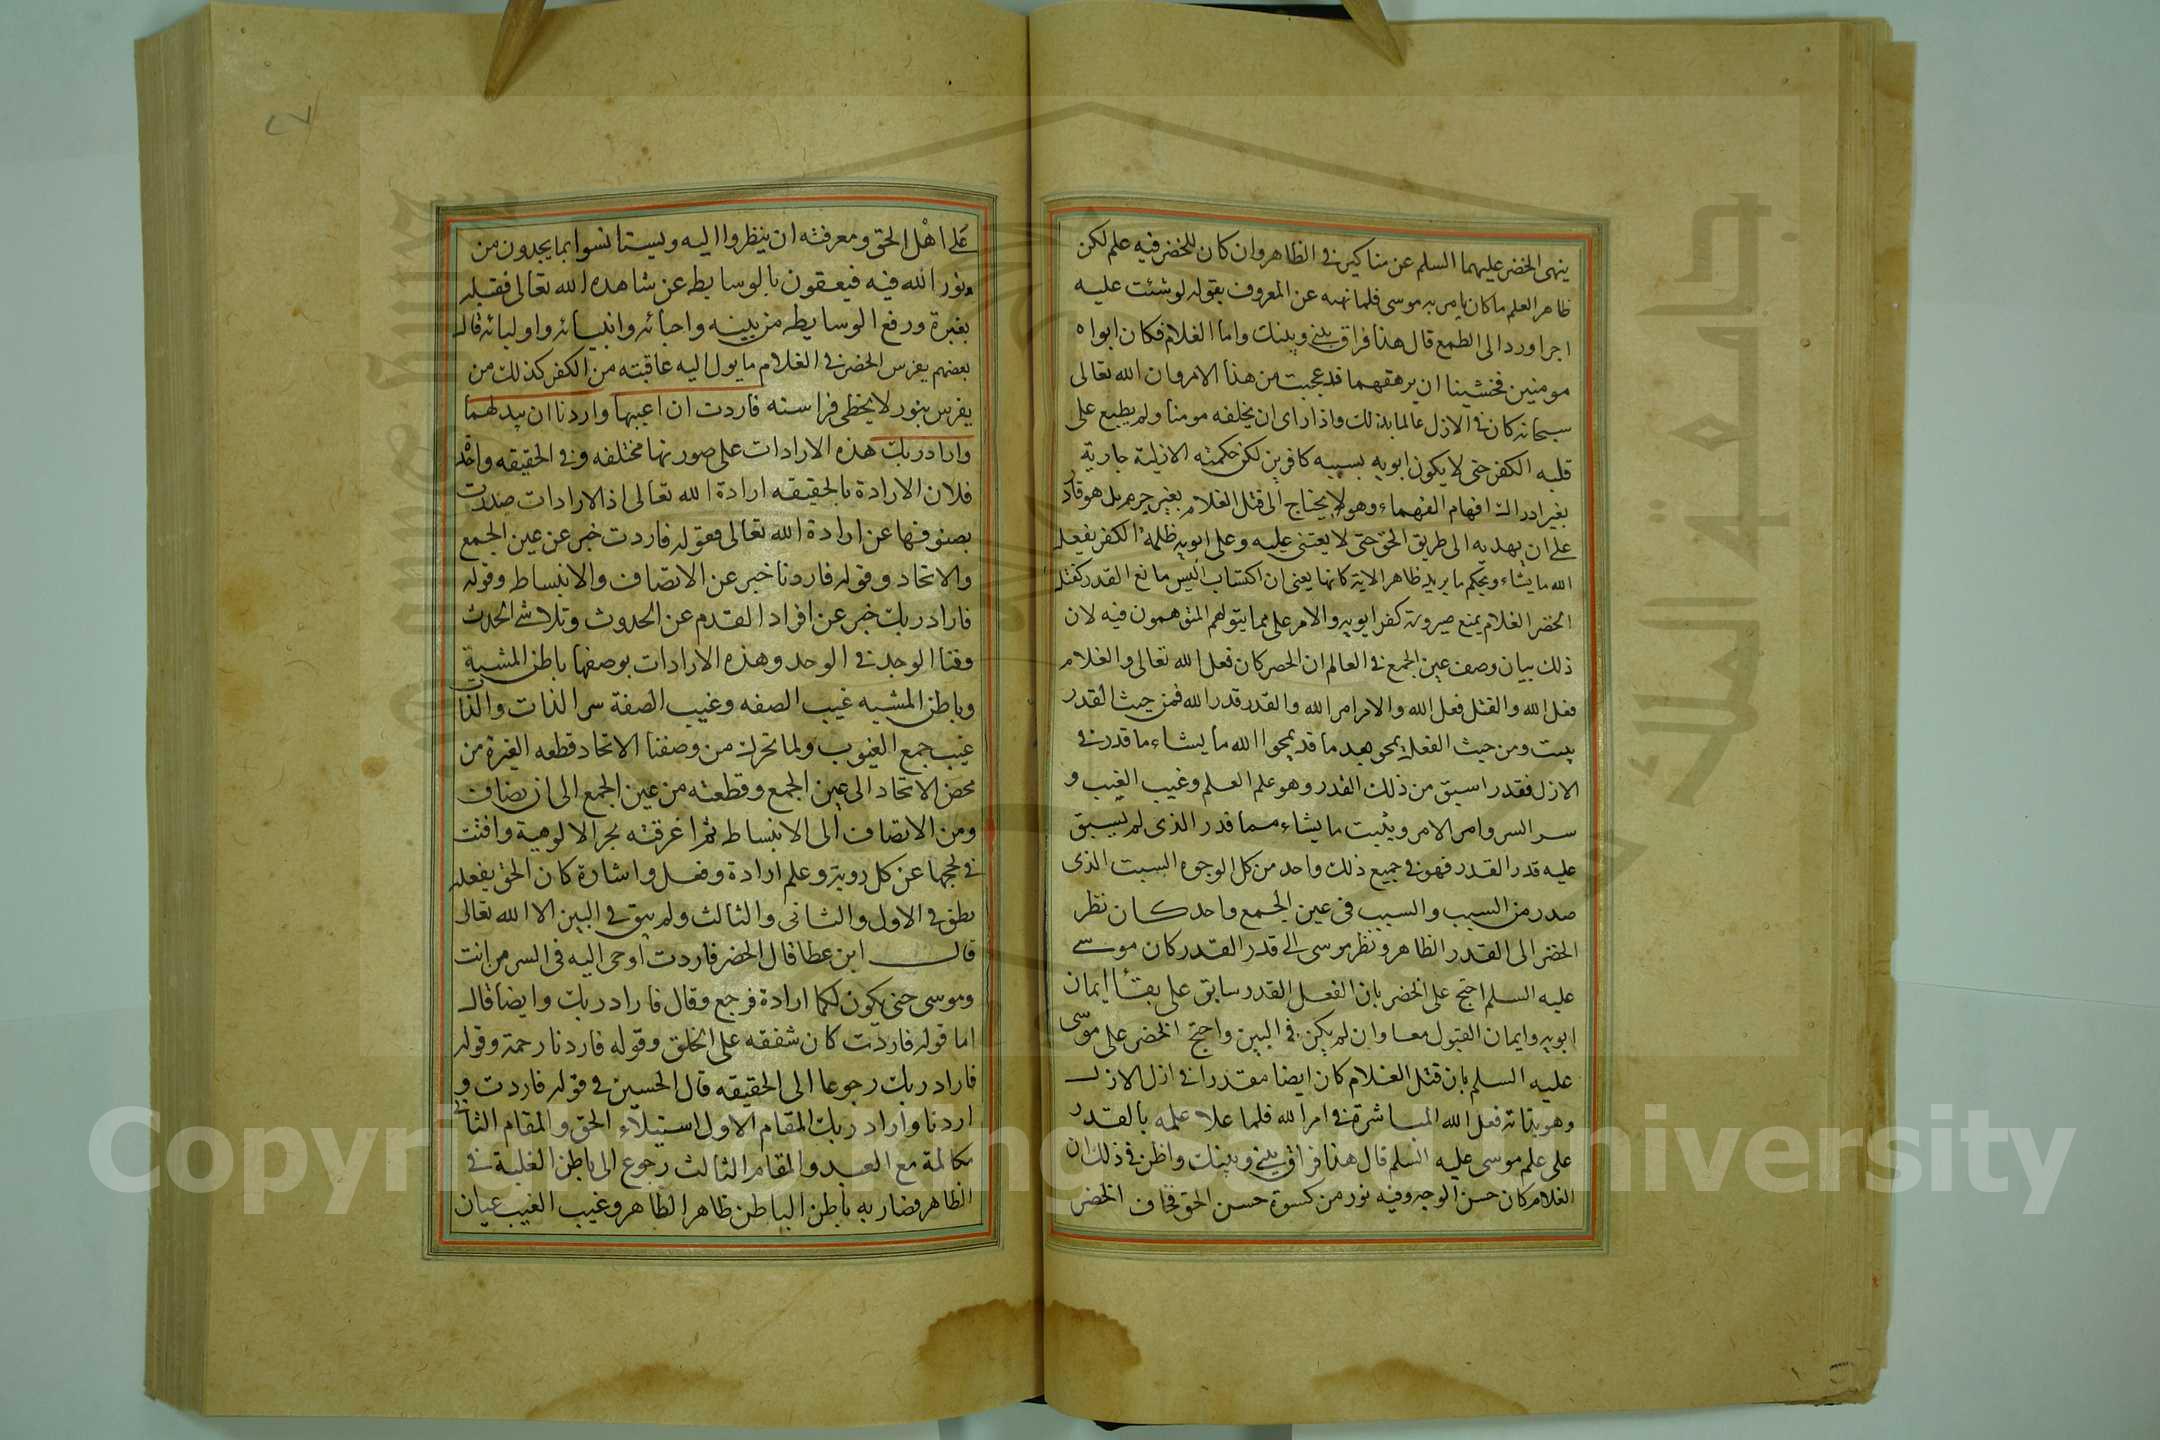 ينهى الخضر عليهما السلم عن مناكير في الظاهر وان كان للخضر فيه علم لكن
ظاهر العلم ما كان يامر به موسى فلما نهيه عن المعروف بقوله لوشئت عليه
اجرا ورد الى الطمع قال هذا فراق بيني وبينك واما الغلام فكان ابواه
مومنين فخشينا ان يرهقهما قد عجبت من هذا الامر وان الله تعالى
سبحانه كان في الازل عالما بذلك واذا راى ان يخلفه مومنا ولم يطبع على
قلبه الكفر حتى لا يكون ابويه بسببه كافرين لكن حكمته الازلية جارية
بغير ادراك افهام الفهماء وهو لا يحتاج الى قتل الغلام بغير جرم بل هو قادر
على ان يهديه الى طريق الحق حتى لا يعتنى عليه وعلى ابويه ظلمة الكفر يفعل
الله ما يشاء ويحكم ما يريد ظاهر الاية كانها يعنى ان اكتساب ليس مانع القدر كقتل
الخضر الغلام يمنع صيرورة كفر ابويه والامر على مما يتوهم المتوهمون فيه لان
ذلك بيان وصف عين الجمع في العالم ان الخضر كان فعل الله تعالى والغلام
فعل الله والقتل فعل الله والامر امر الله والقدر قدر الله فمن حيث القدر
يثبت ومن حيث الفعل يمحو بعد ما قد يمحوا الله ما يشاء ما قدر في
الازل فقدر اسبق من ذلك القدر وهو علم العلم وغيب الغيب و
سر السر وامر الامر ويثبت ما يشاء مما قدر الذى لم يسبق
عليه قدر القدر فهو في جميع ذلك واحد من كل الوجوه السبت الذى
صدر من السبب والسبب في عين الجمع واحد كان نظر
الخضر الى القدر الظاهر ونظر موسى الى قدر القدر كان موسى
عليه السلم احتج على الخضر بان الفعل القدر سابق على بقاء ايمان
ابويه وايمان القبول معا وان لم يكن في البين واحتج الخضر على موسى
عليه السلم بان قتل الغلام كان ايضا مقدرا في ازل الازل
وهو بذاته فعل الله المباشرة في امر الله فلما علا علمه بالقدر
على علم موسى عليه السلم قال هذا فراق بيني وبينك واظن في ذلك ان
الغلام كان حسن الوجه وفيه نور من كسوة حسن الحق فخاف الخضر
على اهل الحق ومعرفته ان ينظروا اليه ويستانسوا بما يجدون من
نور الله فيه فيعقون بالوسايط عن شاهده الله تعالى فقتله
بغيرة ورفع الوسايط من بينه واحبائه وانبيائه واوليائه قال
بعضهم يفرس الخضر في الغلام ما يول اليه عاقبته من الكفر كذلك من
يفرس بنور لا يخطى فراسته فاردت ان اعيبها واردنا ان يبدلهما
واراد ربك هذه الارادات على صورتها مختلفه وفي الحقيقه واحد
فلان الارادة بالحقيقه ارادة الله تعالى اذ الارادات صدرت
بصنوفها عن ارادة الله تعالى فقوله فاردت خبر عن عين الجمع
والاتحاد وقوله فاردنا خبر عن الاتصاف والانبساط وقوله
فاراد ربك خبر عن افراد القدم عن الحدوث وتلاشى الحدث
وفنا الوجد في الوحد وهذه الارادات بوصفها باطن المشية
وباطن المشيه غيب الصفه وغيب الصفة سر الذات والذات
غيب جمع الغيوب ولما تحرك من وصفنا الاتحاد قطعه الغيرة من
محض الاتحاد الى عين الجمع وقطعته من عين الجمع الى اتصاف
ومن الاتصاف الى الانبساط ثم اغرقته بحر الالوهية وافنت
في لججها عن كل روية وعلم ارادة وفعل واشارة كان الحق يفعله
نطق في الاول والثانى والثالث ولم يبق في البين الا الله تعالى
قال ابن عطا قال الخضر فاردت اوحى اليه في السر من انت
وموسى حتى يكون لكما ارادة فرجع وقال فاراد ربك وايضا قال
اما قوله فاردت كان شفقه على الخلق وقوله فاردنا رحمة وقوله
فاراد ربك رجوعا الى الحقيقه قال الحسين في قوله فاردت و
اردنا واراد ربك المقام الاول استيلاء الحق والمقام الثانى
مكالمة مع العبد والمقام الثالث رجوع الى باطن الغلبة في
الظاهر فصار به باطن الباطن ظاهر الظاهر وغيب الغيب عيان
٢٧
Copyright © King Saud University
جامعة الملك سعود